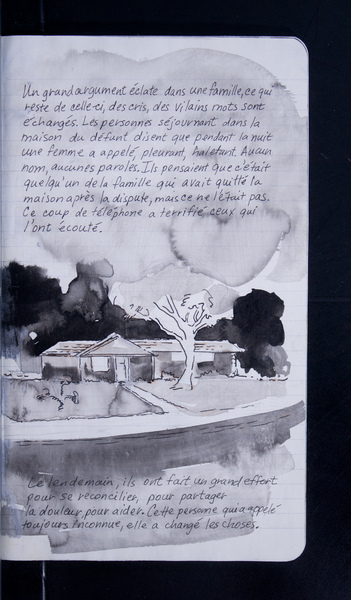 Un grand argument éclate dans une famille, ce qui
reste de celle-ci, des cris, des vilains mots sont
échangés. Les personnes séjournant dans la
maison du défunt disent que pendant la nuit
une femme a appelé, pleurant, haletant. Aucun
nom, aucunes paroles. Ils pensaient que c'était
quelqu'un de la famille qui avait quitté la
maison après la dispute, mais ce ne l'était pas.
Ce coup de téléphone a terrifié ceux qui
l'ont écouté.
Le lendemain, ils ont fait un grand effort
pour se reconcilier, pour partager
la douleur, pour aider. Cette personne qui a appelé
toujours inconnue, elle a changé les choses.